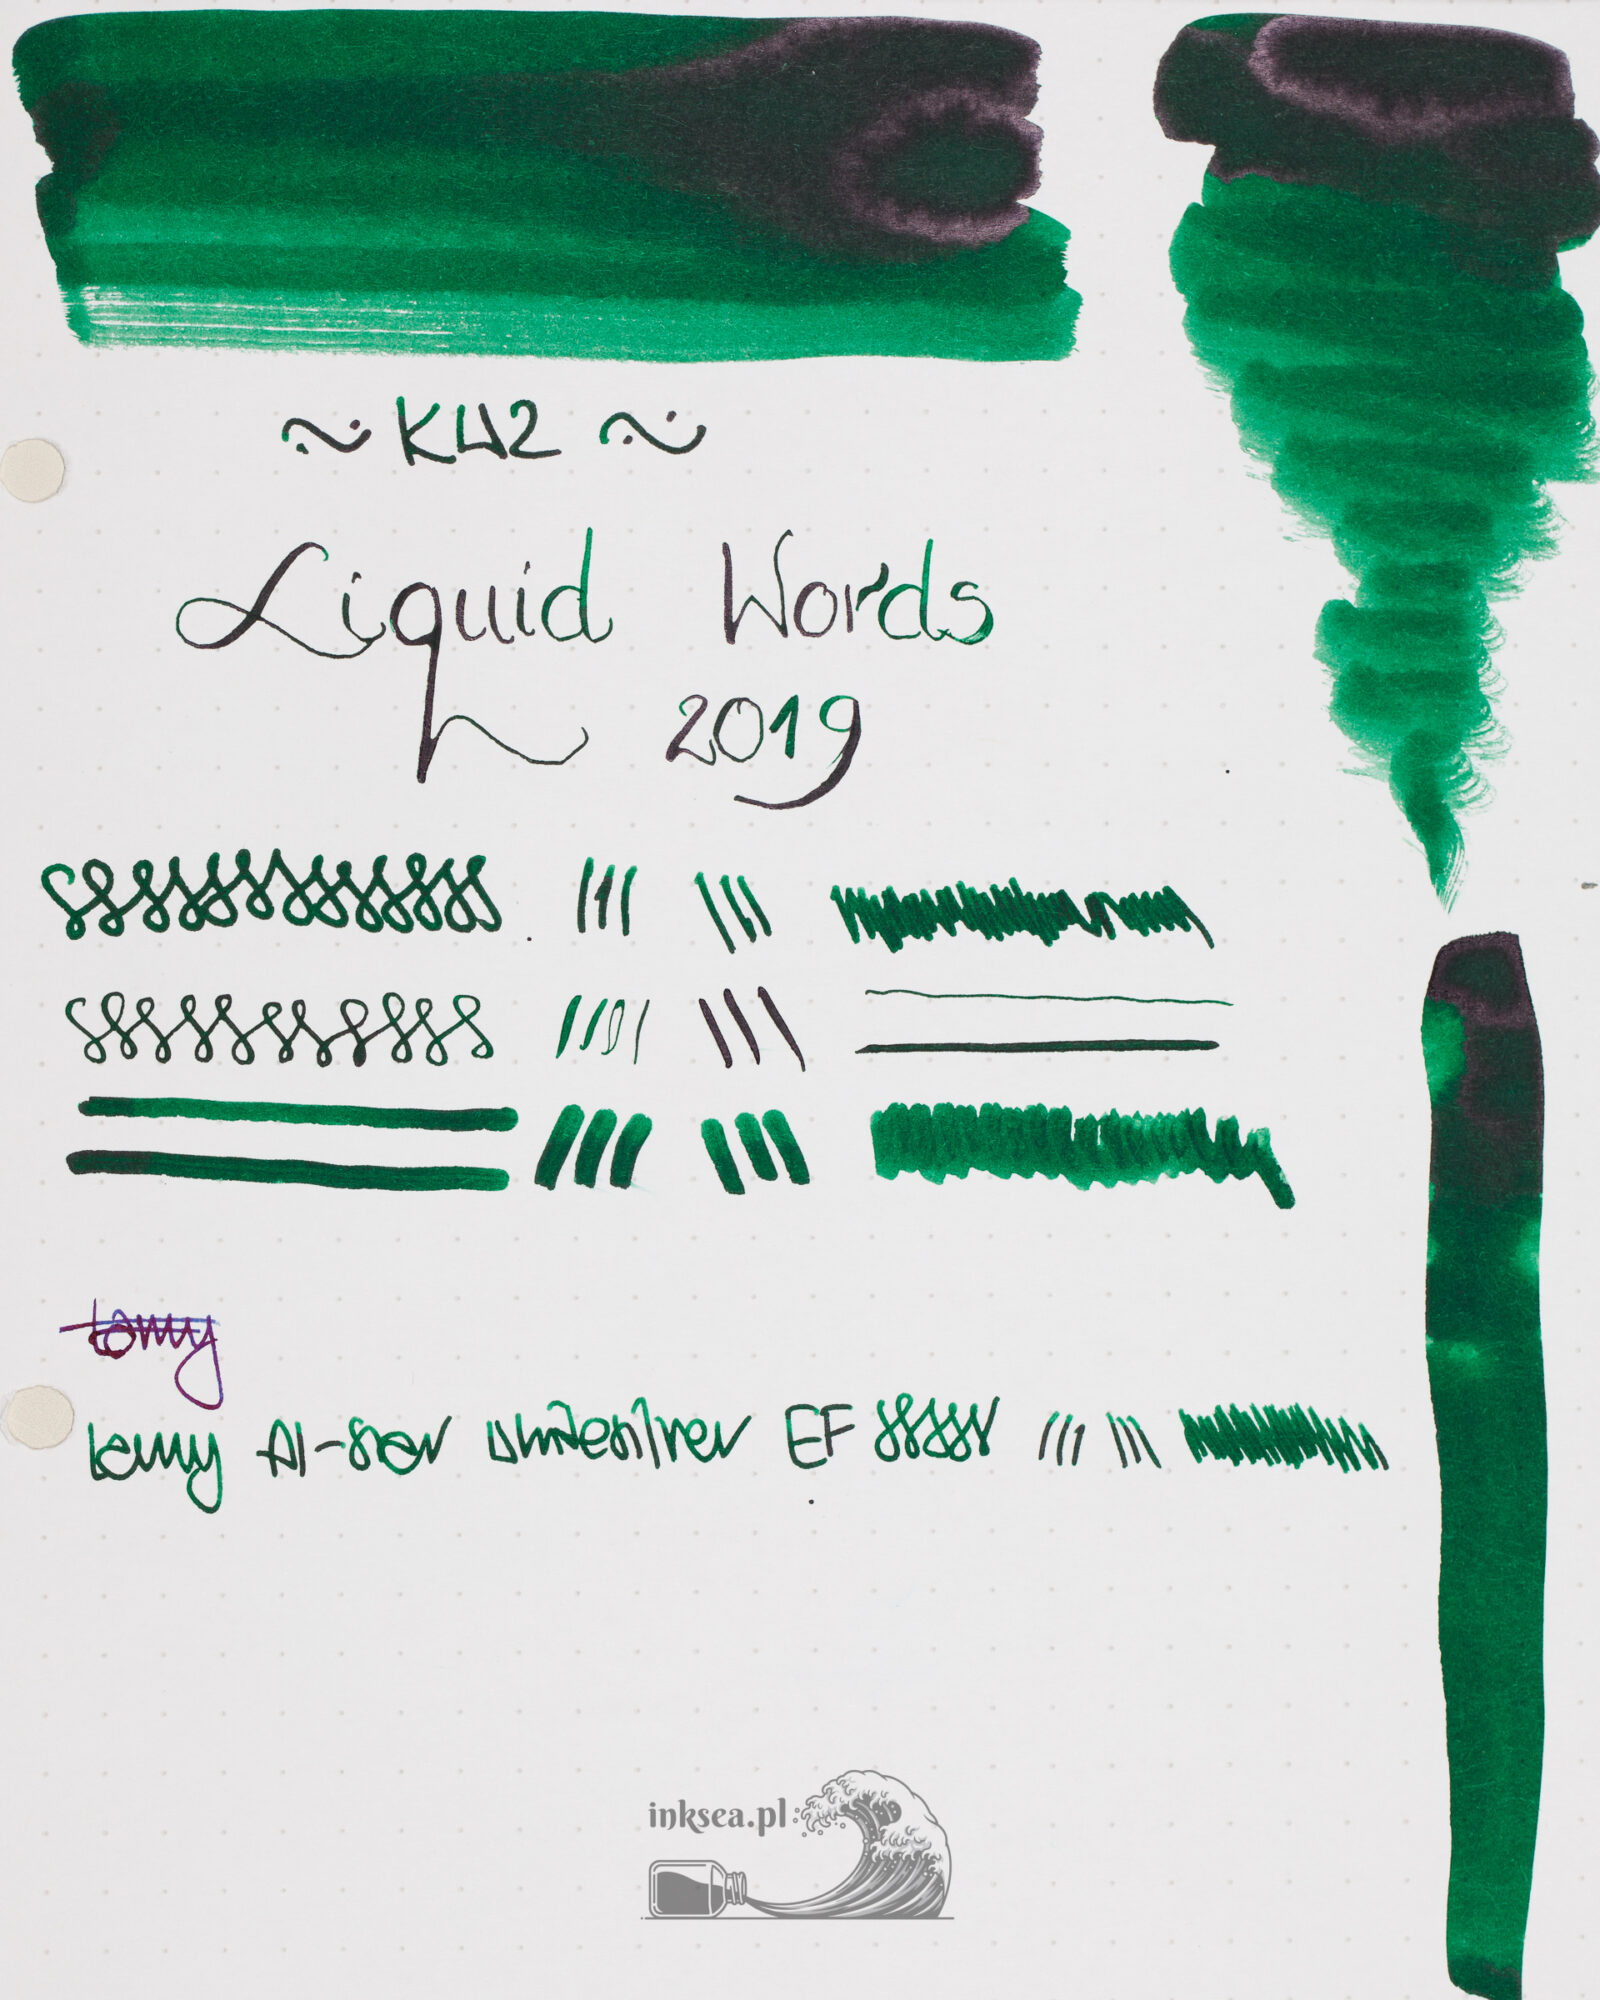 ~ KWZ ~
Liquid Words
2019
Lamy
Lamy Al-star whitesilver EF
inksea.pl